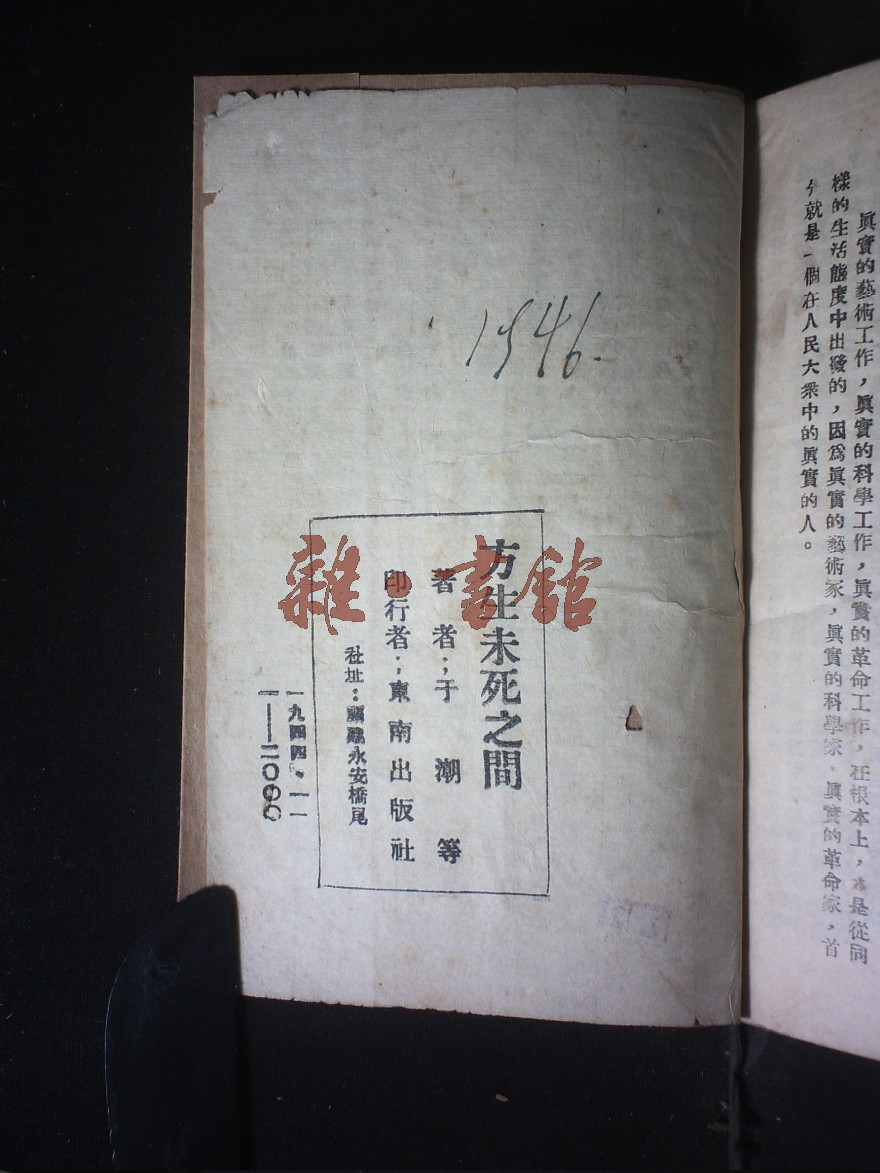 眞實的藝術工作，眞實的科學工作，眞實的革命工作，在根本上，是從同
樣的生活態度中出發的，因爲眞實的藝術家，眞實的科學家，眞實的革命家，首
就是一個在人民大衆中的眞實的人。
1946.
方生未死之間
著者；于潮等
印行者；東南出版社
社址：福建永安橋尾
一九四四．一一
一——二〇〇〇
雜·書館